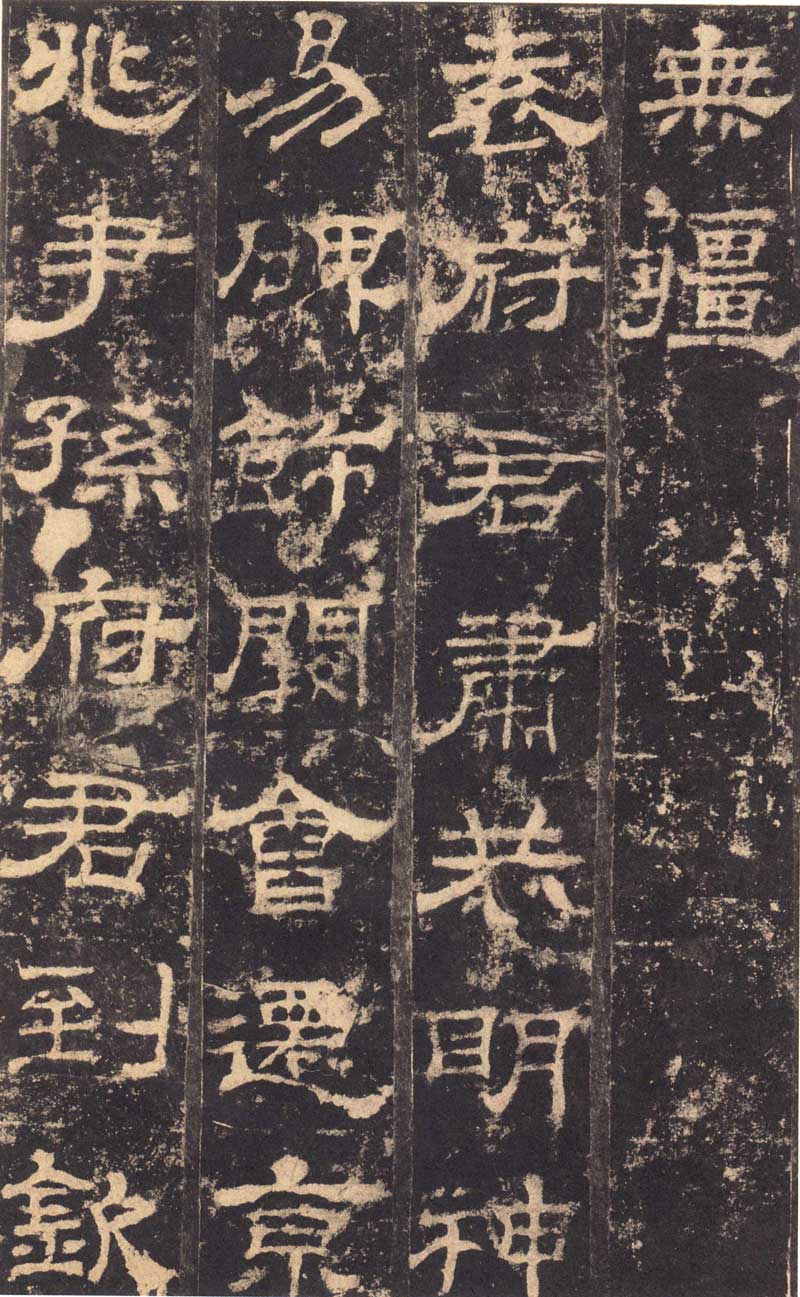 無疆
袁府君肅恭明神
易碑飾闕會遷京
兆尹孫府君到欽